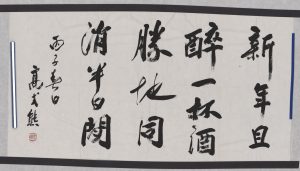 新年且
醉一杯酒
勝地同
消半日閑
丙子春日
高式熊